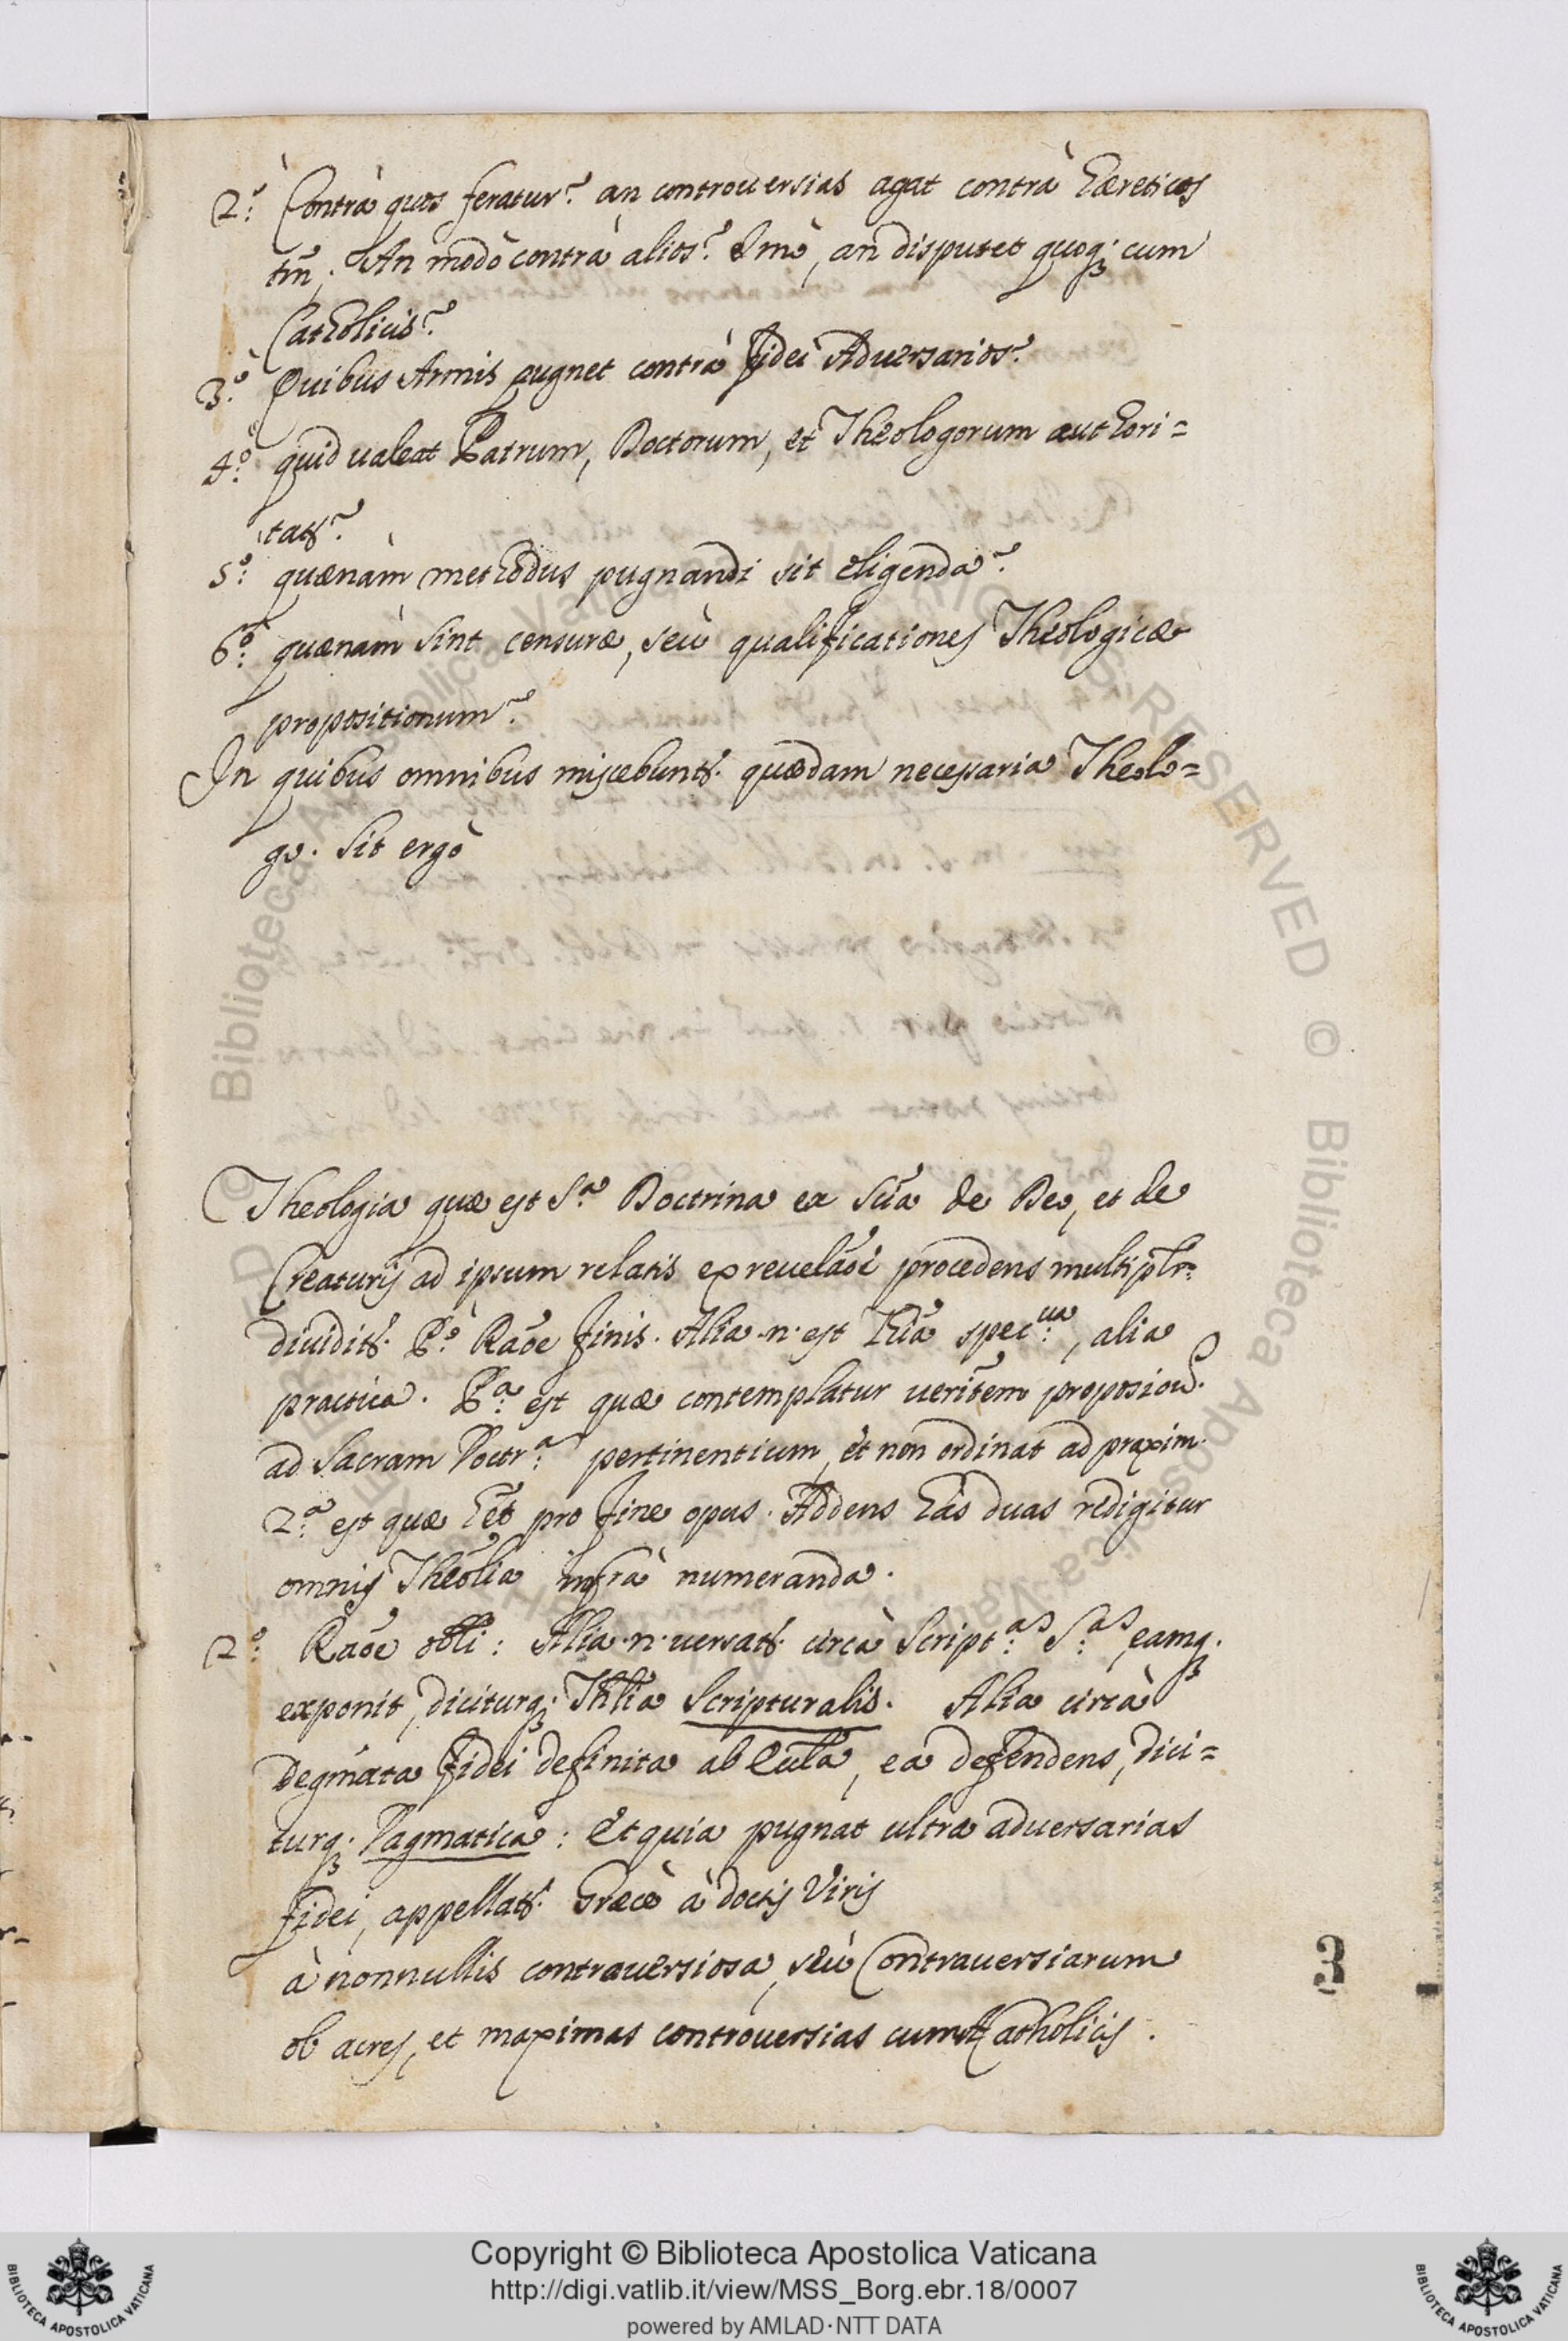 2.º Contrà quos feratur? an controuersias agat contrà Hæreticos
tm̃, An modò contrà alios? Imò, an disputet quoq; cum
Catholicis?
3.º Quibus Armis pugnet contrà fidei Aduersarios?
4.º quid ualeat Patrum, Doctorum, et Theologorum authori=
tas?
5.º quænàm methodus pugnandi sit eligenda?
6.º quænàm sint censuræ, seù qualificationes Theologicæ
propositionum?
In quibus omnibus miscebuntr. quædam necessaria Theolo=
go. Sit ergò
Theologia quæ est S.ª Doctrina ex Sciã de Deo, et de
Creaturis ad ipsum relatis ex reuelaõe procedens multiplr.
diuiditr. P.º Raõe finis. Alia .n. est Thiã spec.ua, alia
practica. P.ª est quæ contemplatur ueritẽm
ad Sacram Doctr.ª pertinentium, et non ordinat ad praxim.
2.ª est quæ hẽt pro fine opus. Ad hens has duas redigitur
omnis Theõlia infrà numeranda.
2.º Raõe obti: Alia .n. uersatr. circà Script.as S.as eamq;
exponit, diciturq; Thlia Scripturalis. Alia circà
Degmata fidei definita ab Eccla, ea defendens, dici=
turq; Dagmatica: Et quia pugnat ultra aduersarias
fidei, appellatr. Græcè à doctis Viris
à nonnullis contrauersiosa, seù Contrauersiarum
ob acres, et maximas controuersias cum Acatholicis.
3
© Biblioteca Apostolica Vaticana ALL RIGHTS RESERVED
Copyright © Biblioteca Apostolica Vaticana
http://digi.vatlib.it/view/MSS_Borg.ebr.18/0007
powered by AMLAD·NTT DATA
BIBLIOTECA APOSTOLICA VATICANA
BIBLIOTECA APOSTOLICA VATICANA